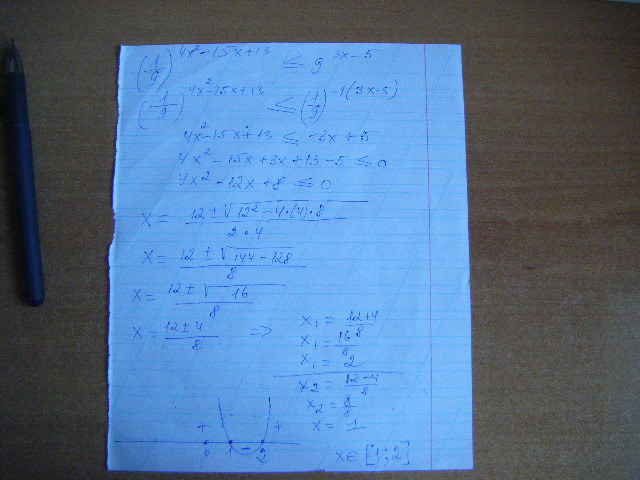 (1/9)^(4x²-15x+13) ≤ 9^(3x-5)
(1/9)^(4x²-15x+13) ≤ (1/9)^(-1(3x-5))
4x²-15x+13 ≤ -3x+5
4x²-15x+3x+13-5 ≤ 0
4x²-12x+8 ≤ 0
x = (12±√(12²-4·(4)·8))/(2·4)
x = (12±√(144-128))/8
x = (12±√16)/8
x = (12±4)/8 => x₁ = (12+4)/8
x₁ = 16/8
x₁ = 2
x₂ = (12-4)/8
x₂ = 8/8
x = 1
+ - +
0 1 2
x∈[1;2]